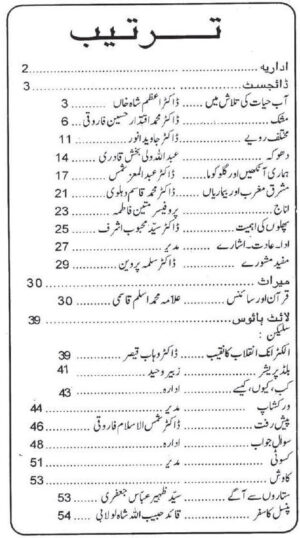 ترتیب
اداریہ ..... 2
ڈائجسٹ ..... 3
آب حیات کی تلاش میں ..... ڈاکٹر اعظم شاہ خاں ..... 3
مشک ..... ڈاکٹر محمد اقتدار حسین فاروقی ..... 6
مختلف رویے ..... ڈاکٹر جاوید انور ..... 11
دھوکہ ..... عبداللہ ولی بخش قادری ..... 14
ہماری آنکھیں اور گلوکوما ..... ڈاکٹر عبدالمعز شمس ..... 17
مشرق مغرب اور بیماریاں ..... ڈاکٹر محمد قاسم دہلوی ..... 21
اناج ..... پروفیسر متین فاطمہ ..... 23
پھلوں کی اہمیت ..... ڈاکٹر سید محبوب اشرف ..... 25
ادا۔ عادت۔ اشارے ..... مدیر ..... 27
مفید مشورے ..... ڈاکٹر سلمہ پروین ..... 29
میراث ..... 30
قرآن اور سائنس ..... علامہ محمد اسلم قاسمی ..... 30
لائٹ ہاؤس ..... 39
سلیکن:
الکٹرانک انقلاب کا نقیب ..... ڈاکٹر وہاب قیصر ..... 39
بلڈ پریشر ..... زبیر وحید ..... 41
کب، کیوں، کیسے ..... ادارہ ..... 43
ورکشاپ ..... مدیر ..... 44
پیش رفت ..... ڈاکٹر شمس الاسلام فاروقی ..... 46
سوال جواب ..... ادارہ ..... 48
کسوٹی ..... مدیر ..... 51
کاوش ..... 53
ستاروں سے آگے ..... سید ظہیر عباس جعفری ..... 53
پنسل کا سفر ..... قائد حبیب اللہ شاہ لولابی ..... 54